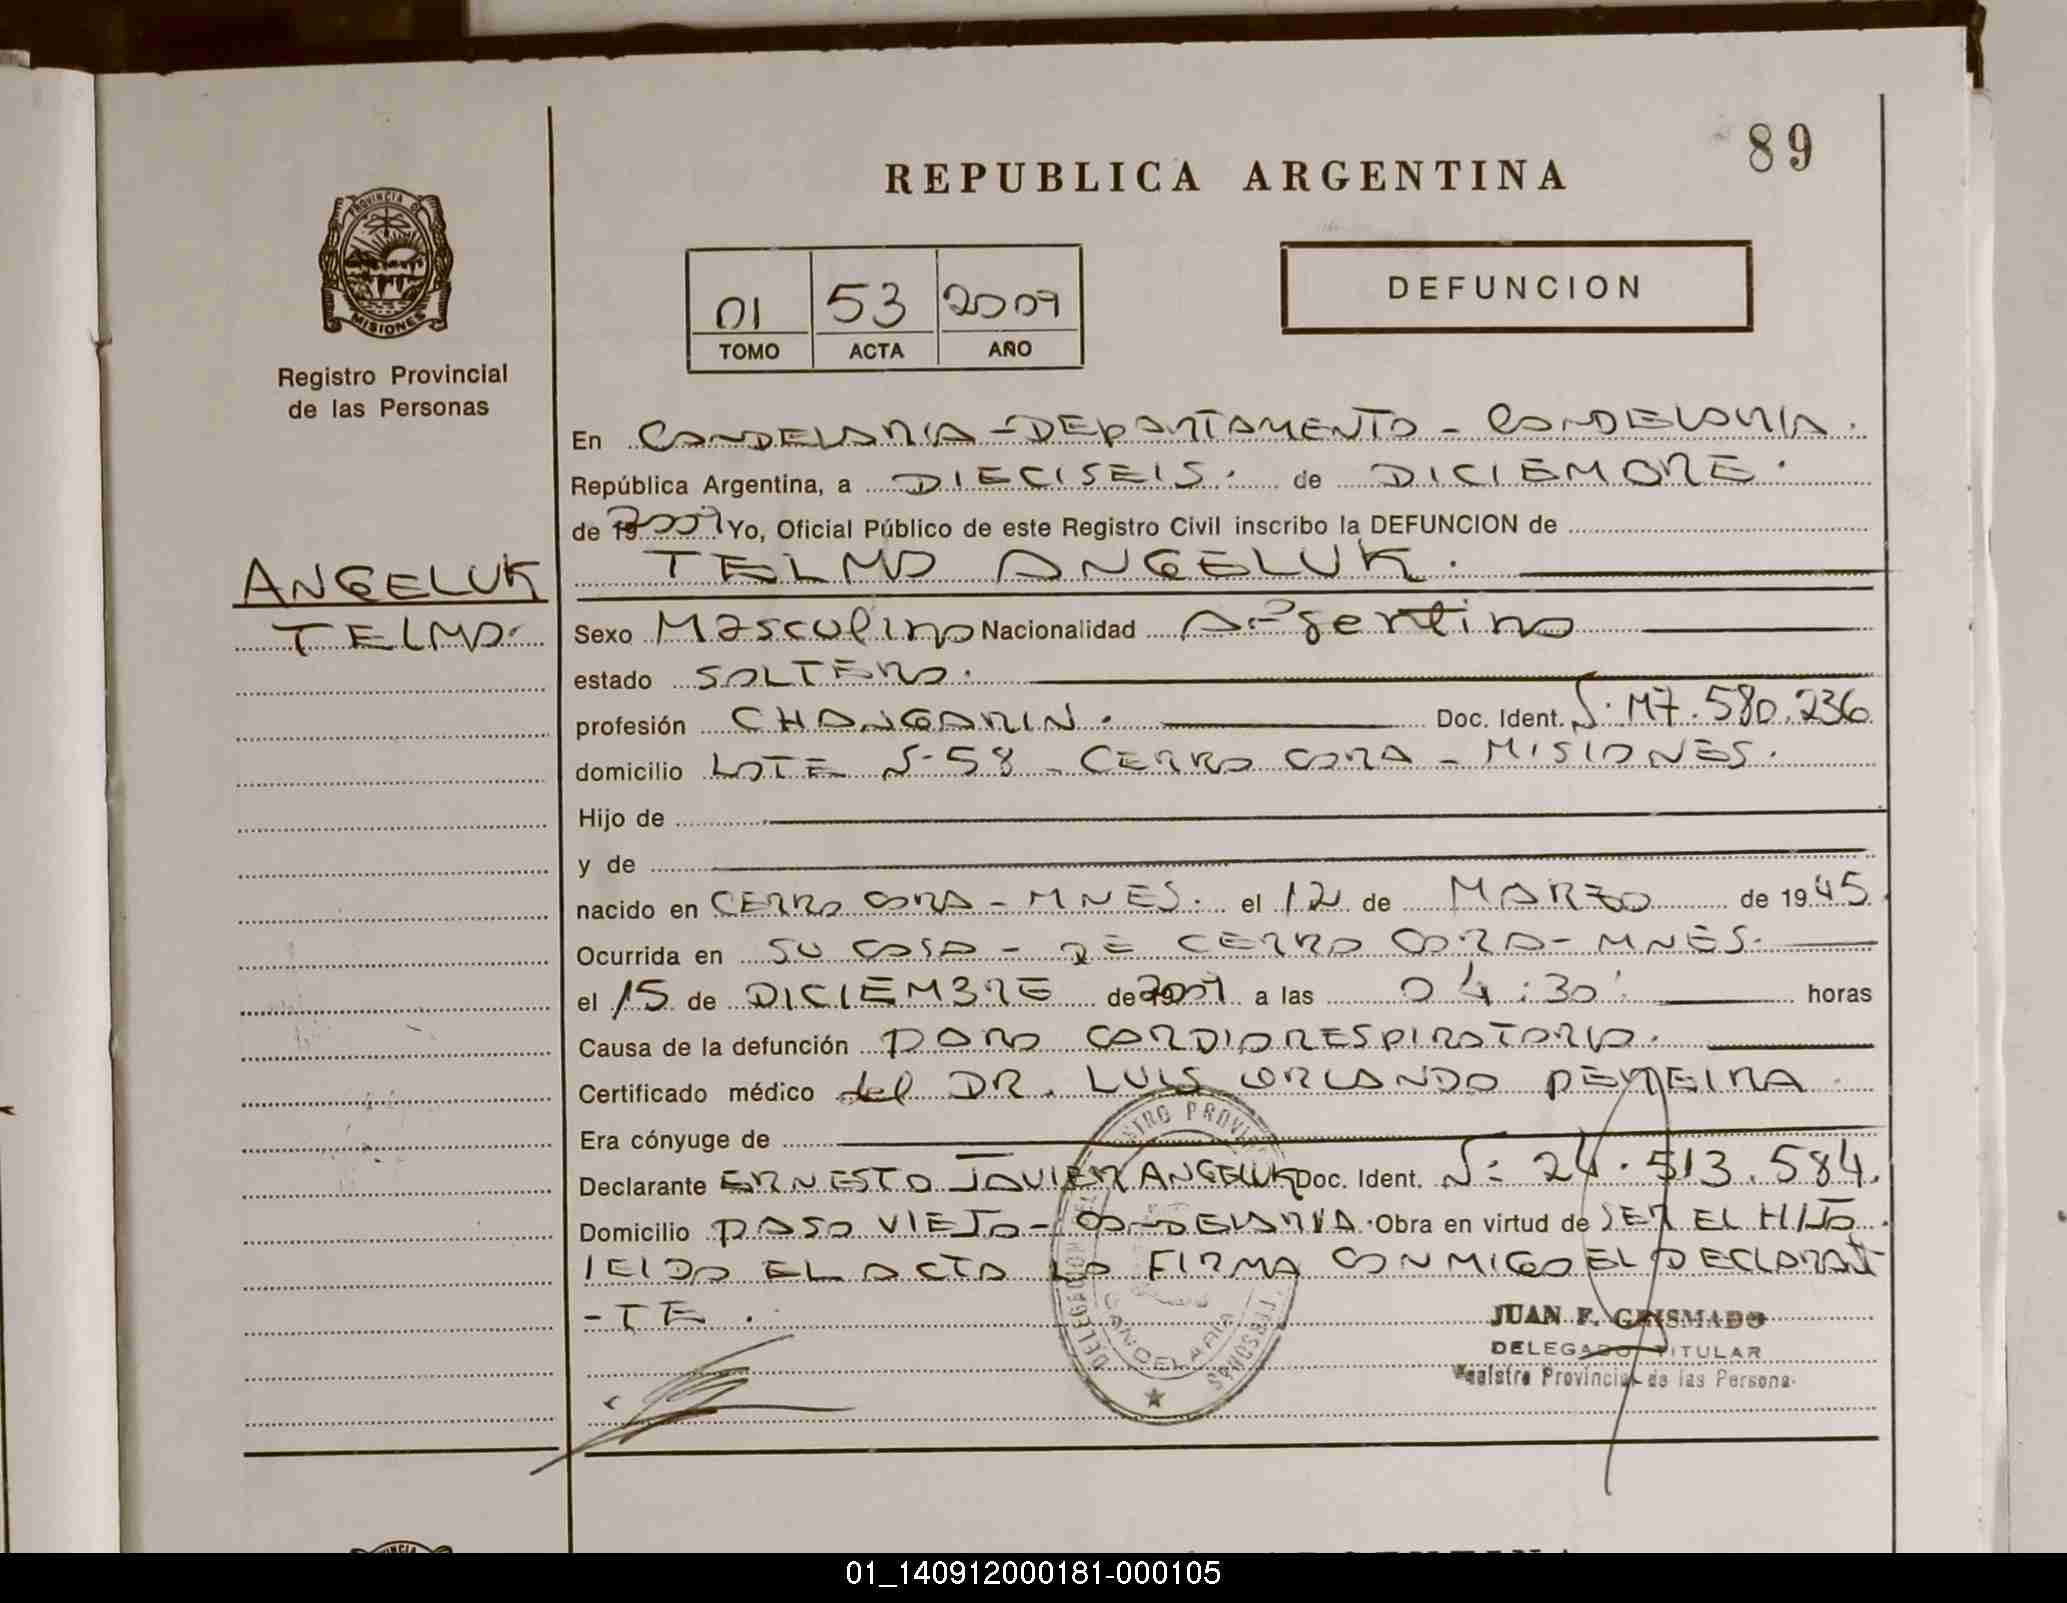 89
REPUBLICA ARGENTINA
PROVINCIA DE
MISIONES
Registro Provincial
de las Personas
01 53 2009
TOMO ACTA AÑO
DEFUNCION
En CANDELARIA - DEPARTAMENTO - CANDELARIA.
República Argentina, a DIECISEIS. de DICIEMBRE.
de 19 2009 Yo, Oficial Público de este Registro Civil inscribo la DEFUNCION de
ANGELUK
TELMO.
TELMO ANGELUK.
Sexo Masculino Nacionalidad Argentino
estado SOLTERO.
profesión CHANGARIN. Doc. Ident. N: M7.580.236
domicilio LOTE N-58 - CERRO CORA - MISIONES.
Hijo de
y de
nacido en CERRO CORA - MNES. el 12 de MARZO de 1945.
Ocurrida en SU CASA - DE CERRO CORA - MNES.
el 15 de DICIEMBRE de 19 2009 a las 04:30' horas
Causa de la defunción PARO CARDIORESPIRATORIO.
Certificado médico del DR. LUIS ORLANDO PEREIRA
Era cónyuge de
Declarante ERNESTO JAVIER ANGELUK Doc. Ident. N: 24.513.584.
Domicilio PASO VIEJO - CANDELARIA. Obra en virtud de SER EL HIJO.
LEIDO EL ACTA LA FIRMA CONMIGO EL DECLARAN
-TE.
JUAN F. GRISMADO
DELEGADO TITULAR
Registro Provincial de las Persona
DELEGACION
CANDELARIA
01_140912000181-000105